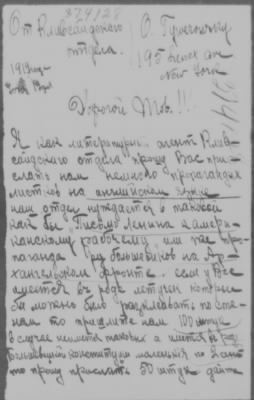 374128
От Кливландского О. Григорчук
отдела. 195
1919 New York
Дорогой Тов.!!!
Я как литературный агент Клив-
ландского отдела прошу Вас при-
слать нам немного пропагандных
листков на английском языке
наш отдел нуждается в таковых
как бы "Письмо Ленина к амери-
канскому рабочему, или же про-
паганда большевиков на Ар-
хангельском фронте. если у Вас
имеется в роде летучек которые
бы можно было расклеивать по сте-
нам то пришлите нам 100 штук
в случае неимеется таковых а имеется
конституции маленькия по 2 цент
то прошу прислать 50 штук дайте